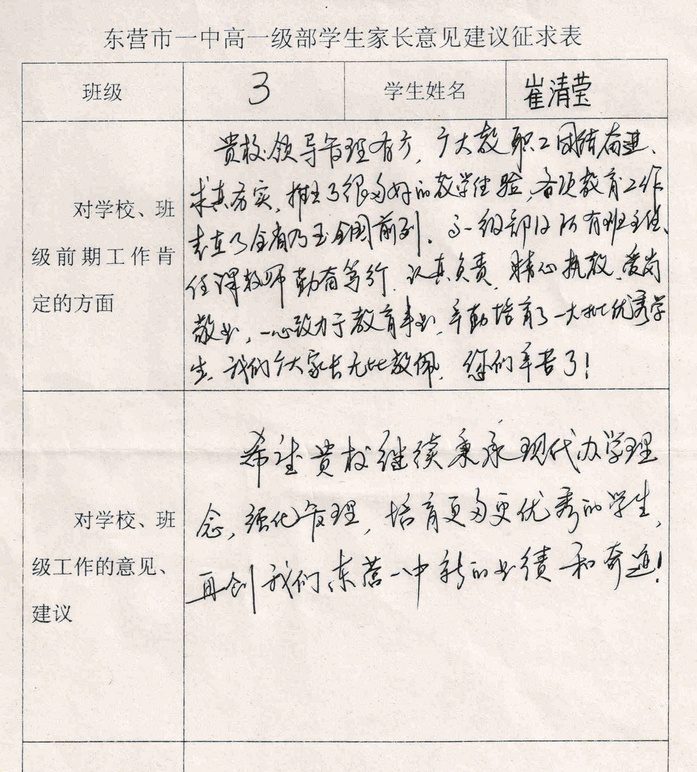 东营市一中高一级部学生家长意见建议征求表
班级 3 学生姓名 崔清莹
对学校、班
级前期工作肯
定的方面
贵校领导管理有方，广大教职工团结奋进、
求真务实，推出了很多好的教学经验，各项教育工作
走在了全省乃至全国前列。高一级部及所有班主任、
任课教师勤奋笃行、认真负责、精心执教、爱岗
敬业，一心致力于教育事业，辛勤培育了一大批优秀学
生，我们广大家长无比敬佩，您们辛苦了！
对学校、班
级工作的意见、
建议
希望贵校继续秉承现代办学理
念，强化管理，培育更多更优秀的学生，
再创我们东营一中新的业绩和奇迹！